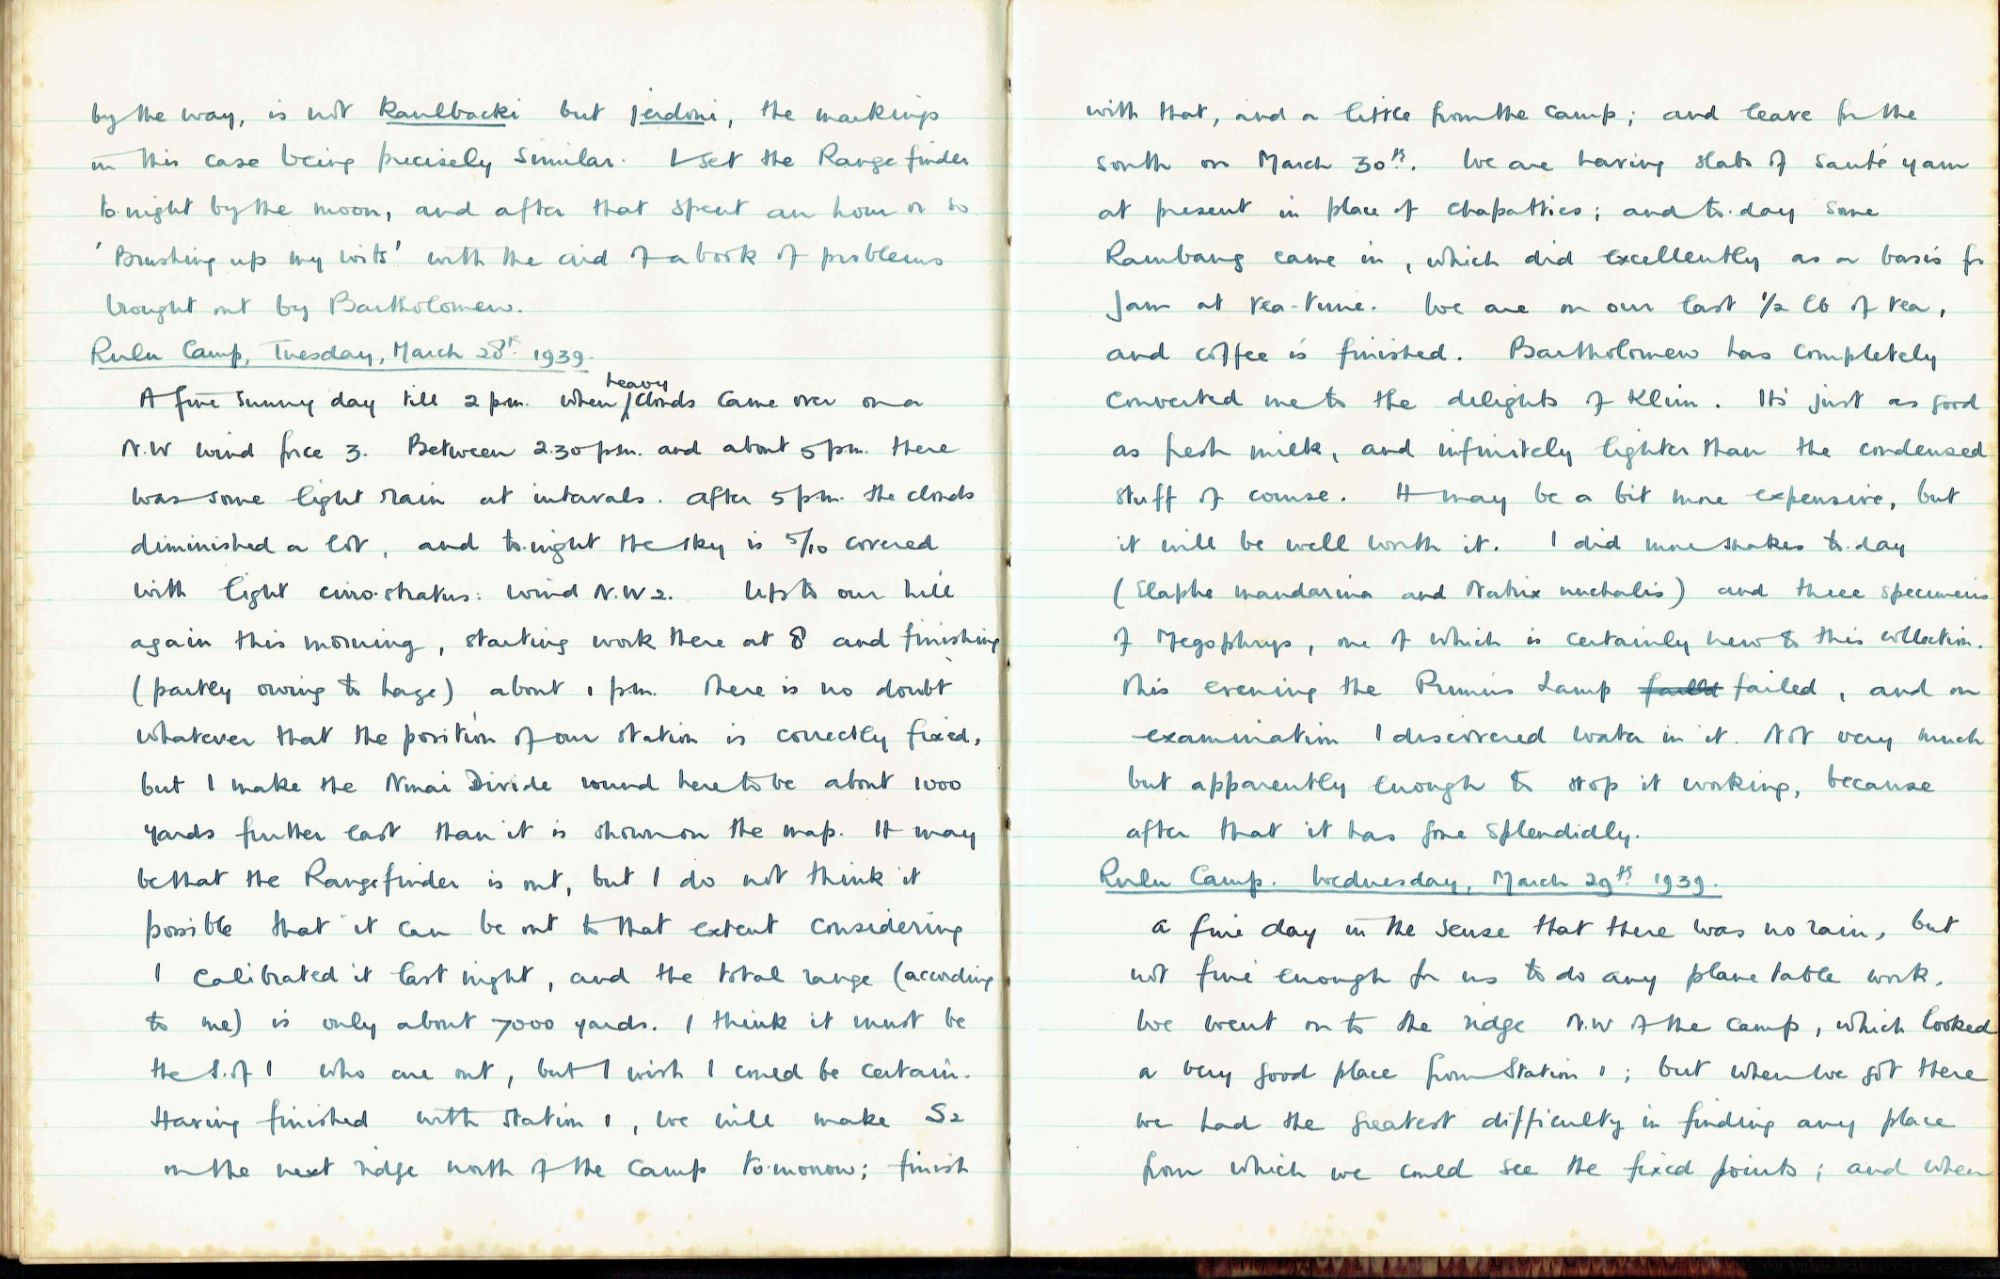 by the way, is not Kaulbacki but jerdoni, the markings
in this case being precisely similar. I set the Rangefinder
to-night by the moon, and after that spent an hour or so
'Brushing up my wits' with the aid of a book of problems
brought out by Bartholomew.
Rulu Camp, Tuesday, March 28th 1939.
A fine sunny day till 2 pm. when heavy clouds came over on a
N.W wind force 3. Between 2.30 p.m. and about 5 pm. there
was some light rain at intervals. After 5 pm. the clouds
diminished a lot, and to-night the sky is 5/10 covered
with light cirro-stratus: wind N.W 2. Up to our hill
again this morning, starting work there at 8 and finishing
(partly owing to haze) about 1 pm. There is no doubt
whatever that the position of our station is correctly fixed,
but I make the Nmai Divide round here to be about 1000
yards further east than it is shown on the map. It may
be that the Rangefinder is out, but I do not think it
possible that it can be out to that extent considering
I calibrated it last night, and the total range (according
to me) is only about 7000 yards. I think it must be
the S. of I who are out, but I wish I could be certain.
Having finished with station 1, we will make S2
on the next ridge north of the camp to-morrow; finish
with that, and a little from the camp; and leave for the
south on March 30th. We are having slabs of Santé yam
at present in place of chapatties; and to-day some
Rambang came in, which did excellently as a basis for
jam at tea-time. We are on our last 1/2 lb of tea,
and coffee is finished. Bartholomew has completely
converted me to the delights of Klim. It's just as good
as fresh milk, and infinitely lighter than the condensed
stuff of course. It may be a bit more expensive, but
it will be well worth it. I did more snakes to-day
(Elaphe mandarina and Natrix nuchalis) and three specimens
of Megophrys, one of which is certainly new to this collection.
This evening the Primus Lamp failed, and on
examination I discovered water in it. Not very much
but apparently enough to stop it working, because
after that it has gone splendidly.
Rulu Camp. Wednesday, March 29th 1939.
A fine day in the sense that there was no rain, but
not fine enough for us to do any plane table work.
We went on to the ridge N.W of the camp, which looked
a very good place from Station 1; but when we got there
we had the greatest difficulty in finding any place
from which we could see the fixed points; and when